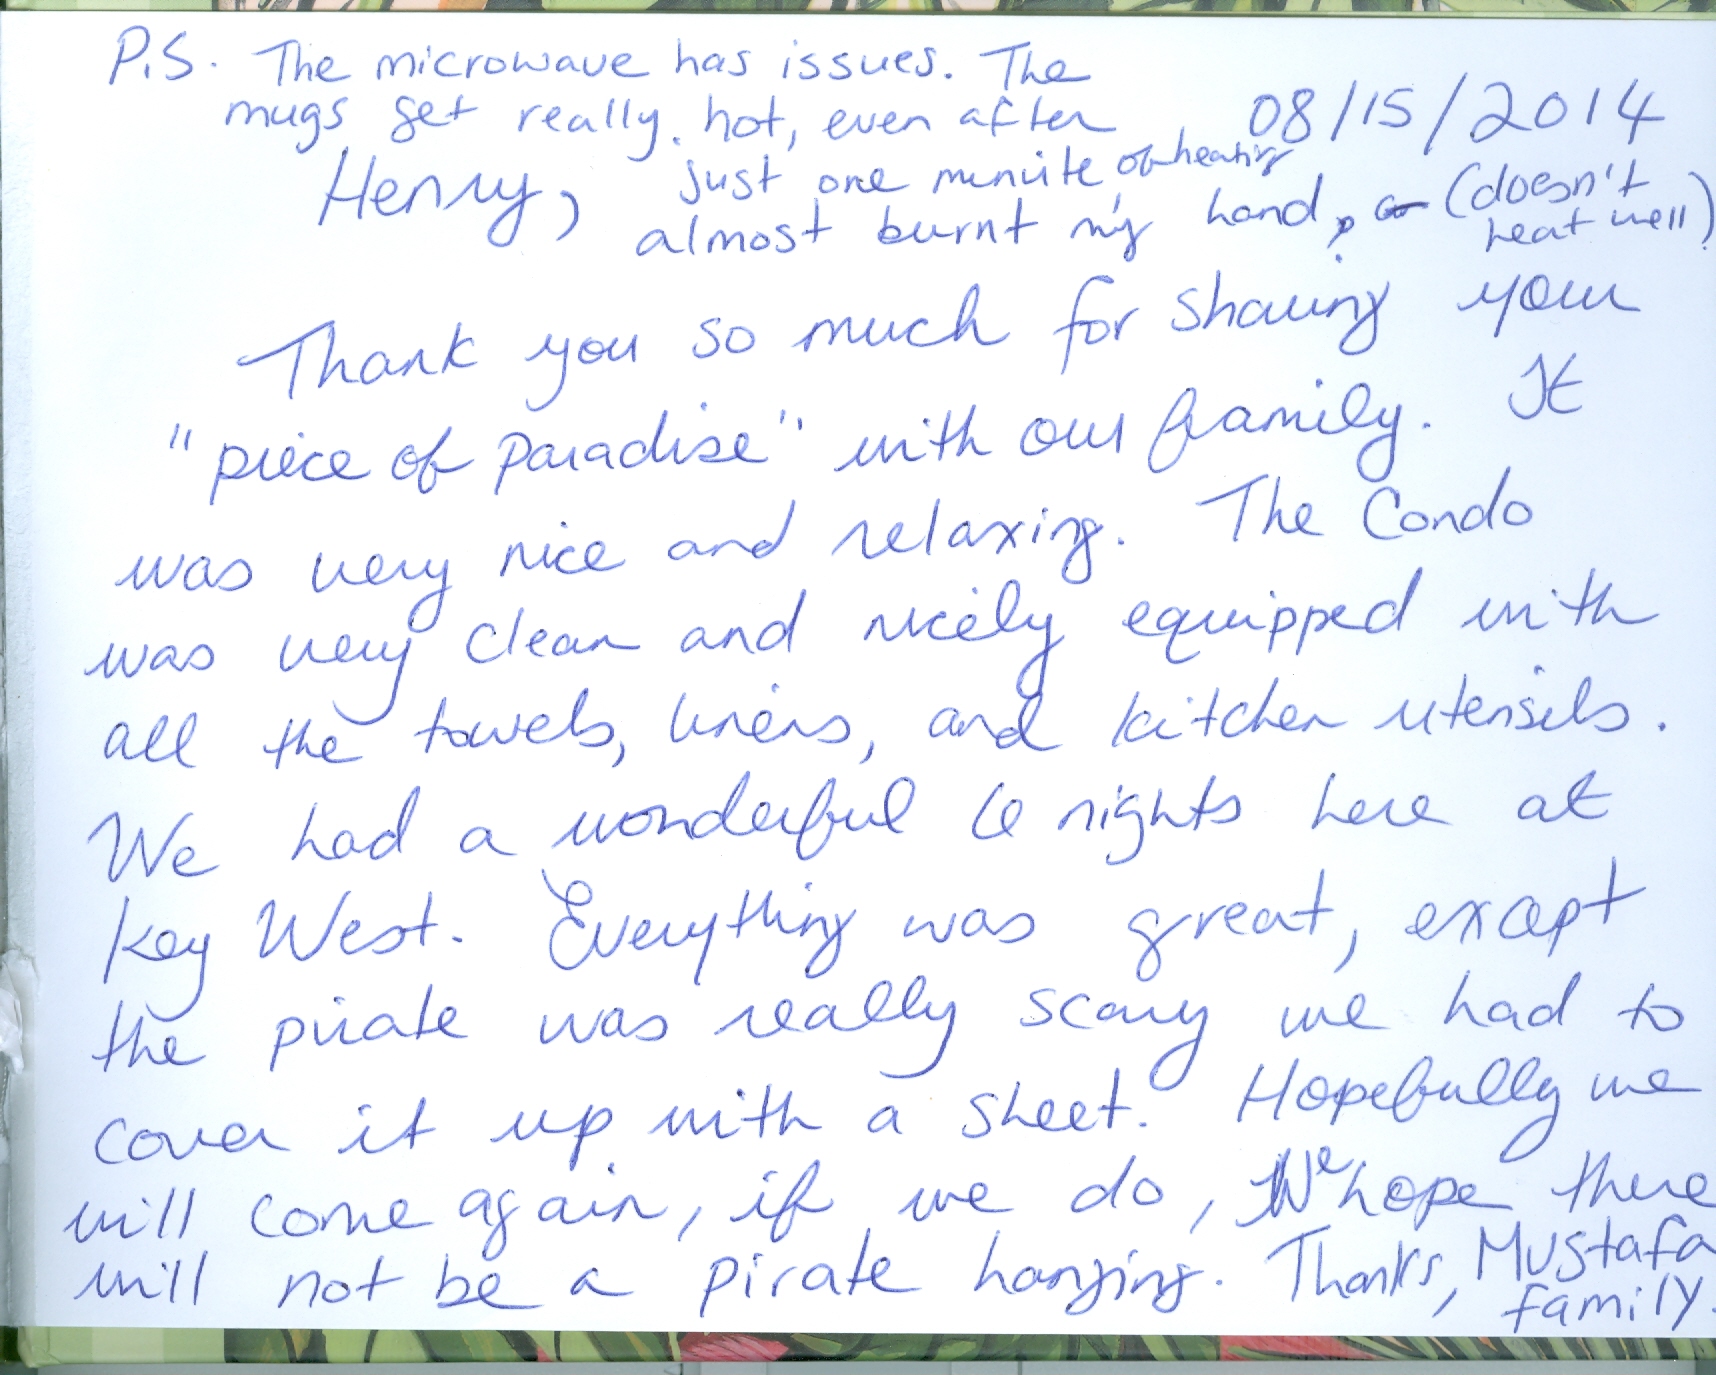 P.S. The microwave has issues. The
mugs get really hot, even after
08/15/2014
just one minute of heating
almost burnt my hand, (doesn't
heat well)
Henry,
Thank you so much for sharing your
"piece of paradise" with our family. It
was very nice and relaxing. The Condo
was very clean and nicely equipped with
all the towels, linens, and kitchen utensils.
We had a wonderful 6 nights here at
Key West. Everything was great, except
the pirate was really scary we had to
cover it up with a sheet. Hopefully we
will come again, if we do, We hope there
will not be a pirate hanging. Thanks, Mustafa
family.